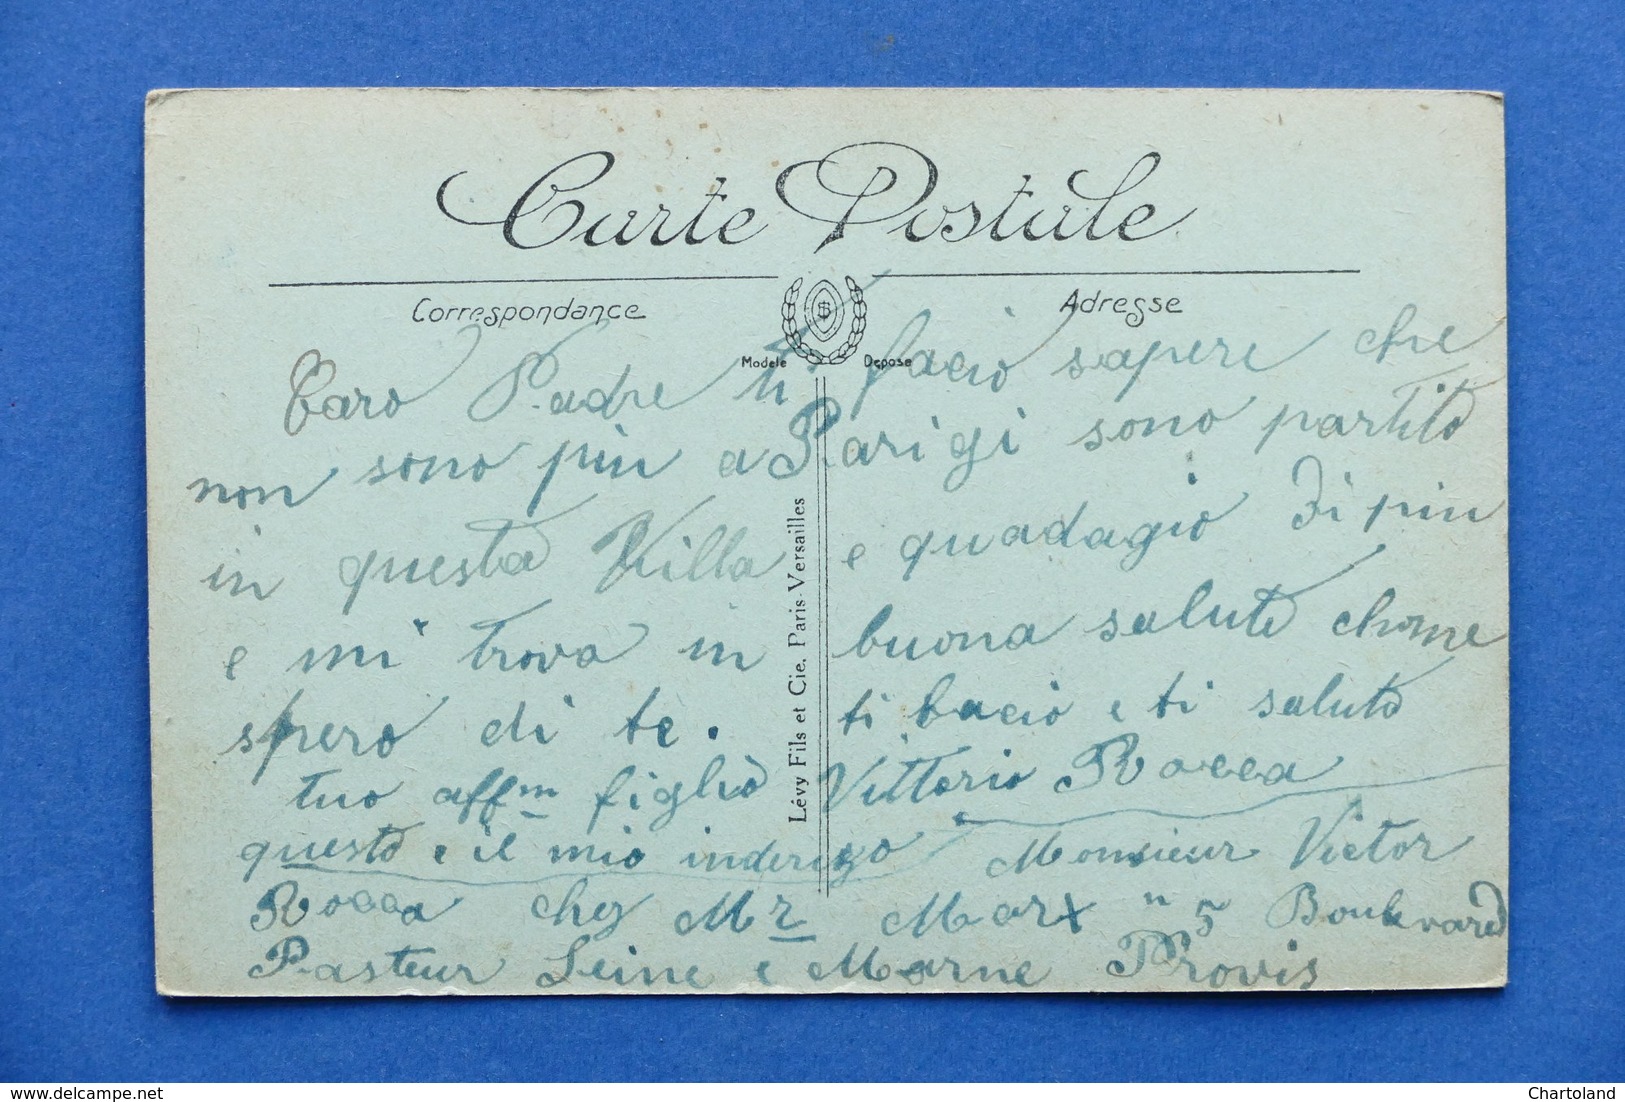 Carte Postale
Correspondance
Adresse
Modele Depose
Caro Padre ti facio sapere che
non sono piu a Parigi sono partito
in questa Villa e quadagio Di piu
e mi trova in buona saluto chome
spero di te. ti bacio e ti saluto
tuo affm figlio Vittorio Rocca
questo e il mio inderizo Monsieur Victor
Rocca chez Mr Marx n 5 Boulevard
Pasteur Seine e Marne Provis
Lévy Fils et Cie, Paris-Versailles
Chartoland